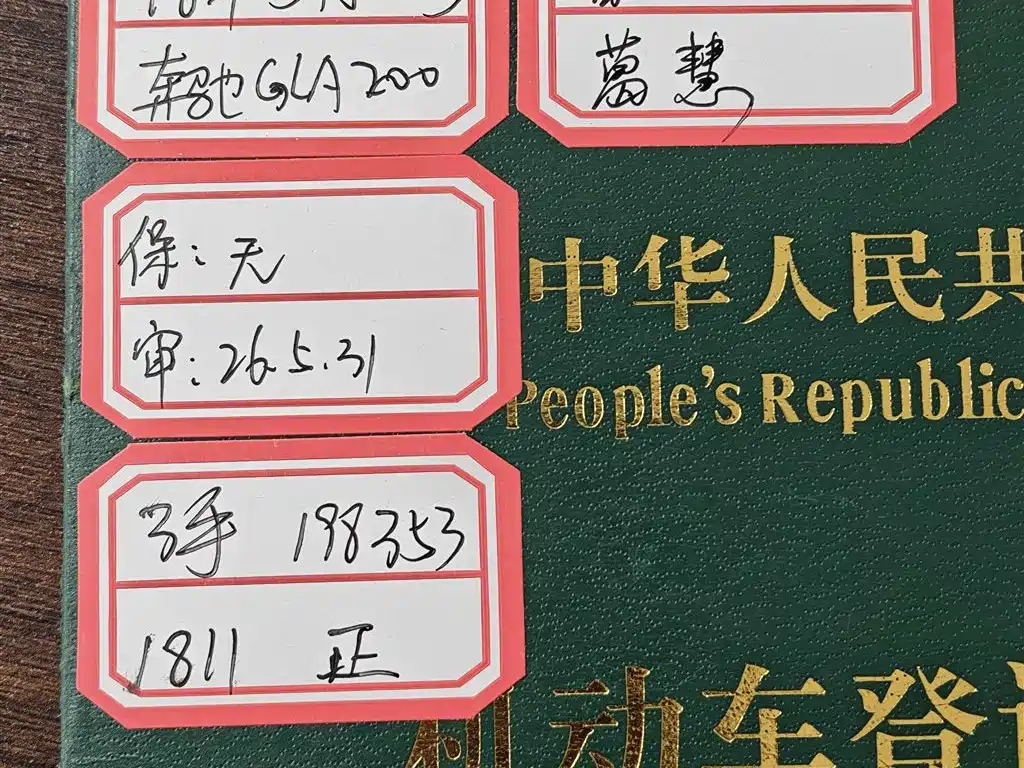 奔驰GLA200
萬慧
保:无
审:26.5.31
中华人民共
People's Republic
3手 198353
1811 正
机动车登